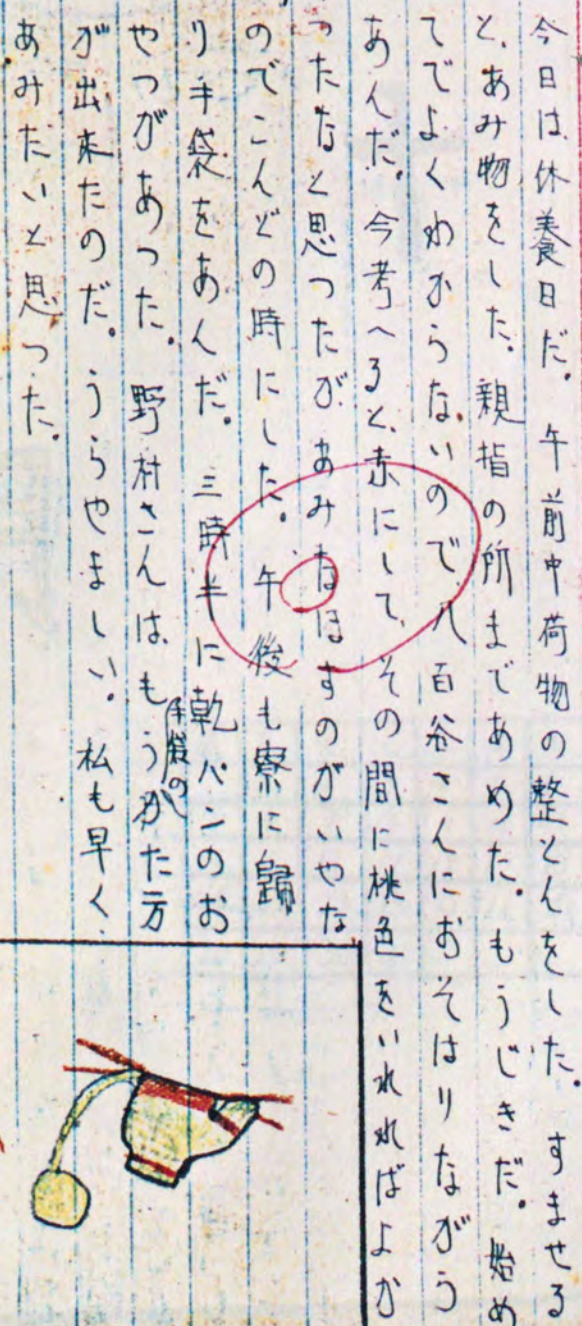 今日は休養日だ。午前中荷物の整とんをした。すませる
と、あみ物をした。親指の所まであめた。もうじきだ。始め
てでよくわからないので、八百谷さんにおそはりながらう
あんだ。今考へると、赤にして、その間に桃色をいれればよか
つたなと思つたが、あみなほすのがいやな
のでこんどの時にした。午後も寮に歸
り手袋をあんだ。三時半に乾パンのお
やつがあつた。野村さんは、もう手袋のかた方
が出来たのだ。うらやましい。私も早く
あみたいと思つた。